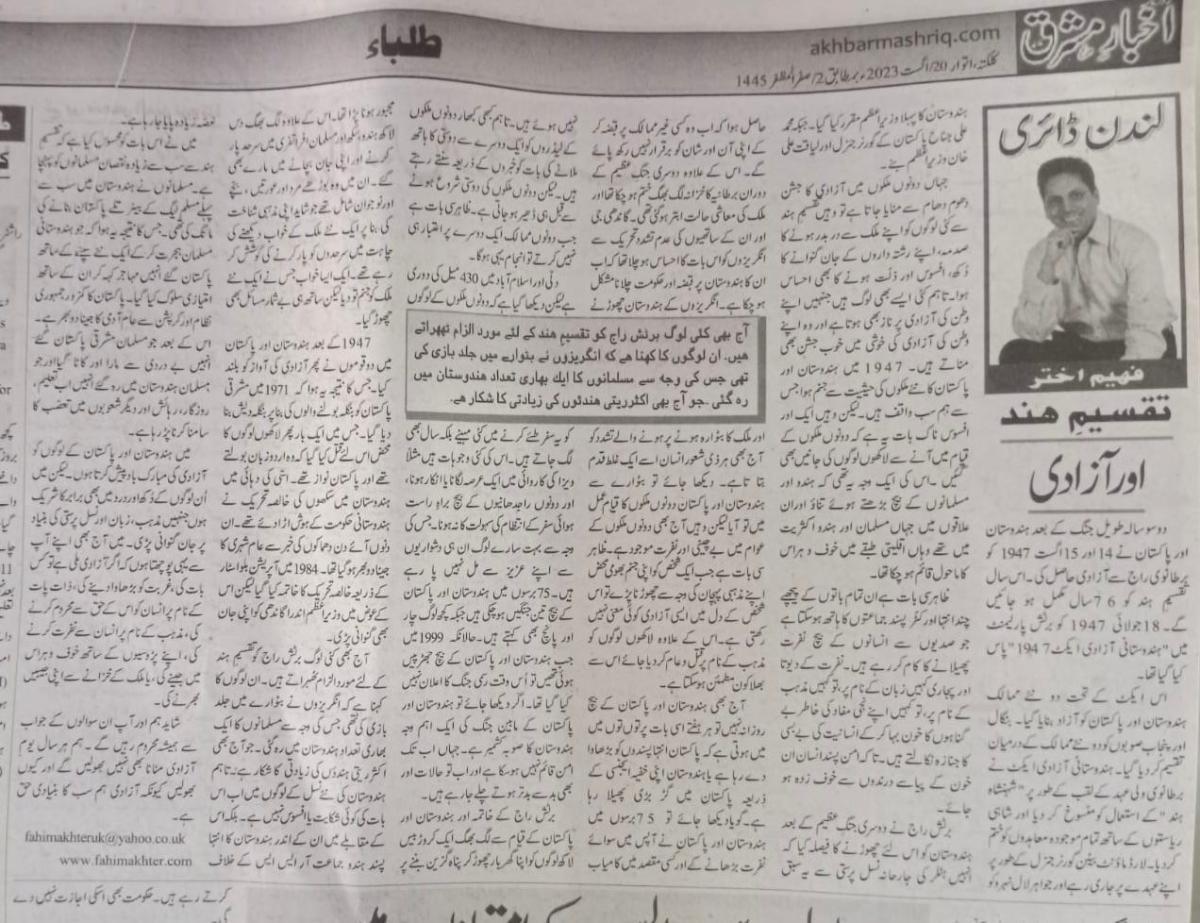 اخبارِ مشرق
akhbarmashriq.com
کلکتہ، اتوار 20/اگست 2023ء بمطابق 2/صفر المظفر 1445
طلباء
لندن ڈائری
فہیم اختر
تقسیمِ ہند
اور آزادی
دو سو سالہ طویل جنگ کے بعد ہندوستان
اور پاکستان نے 14 اور 15 اگست 1947 کو
برطانوی راج سے آزادی حاصل کی۔ اس سال
تقسیم ہند کو 76 سال مکمل ہو جائیں
گے۔ 18 جولائی 1947 کو برٹش پارلیمنٹ
میں "ہندوستانی آزادی ایکٹ 1947" پاس
کیا گیا تھا۔
اس ایکٹ کے تحت دو نئے ممالک
ہندوستان اور پاکستان کو آزاد بنایا گیا۔ بنگال
اور پنجاب صوبوں کو دو نئے ممالک کے درمیان
تقسیم کر دیا گیا۔ ہندوستانی آزادی ایکٹ نے
برطانوی ولی عہد کے لقب کے طور پر "شہنشاہ
ہند" کے استعمال کو منسوخ کر دیا اور شاہی
ریاستوں کے ساتھ تمام موجودہ معاہدوں کو ختم
کر دیا۔ لارڈ ماؤنٹ بیٹن گورنر جنرل کے طور پر
اپنے عہدے پر جاری رہے اور جواہر لال نہرو کو
ہندوستان کا پہلا وزیر اعظم مقرر کیا گیا۔ جبکہ محمد
علی جناح پاکستان کے گورنر جنرل اور لیاقت علی
خان وزیر اعظم بنے۔
جہاں دونوں ملکوں میں آزادی کا جشن
دھوم دھام سے منایا جاتا ہے تو وہیں تقسیم ہند
سے کئی لوگوں کو اپنے ملک سے در بدر ہونے کا
صدمہ، اپنے رشتہ داروں کے جان گنوانے کا
دکھ، افسوس اور ذلت ہونے کا بھی احساس
ہوا۔ تاہم کئی ایسے بھی لوگ ہیں جنہیں اپنے
وطن کی آزادی پر ناز بھی ہوتا ہے اور وہ اپنے
وطن کی آزادی کی خوشی میں خوب جشن بھی
مناتے ہیں۔ 1947 میں ہندوستان اور
پاکستان کا نئے ملکوں کی حیثیت سے جنم ہوا جس
سے ہم سب واقف ہیں۔ لیکن وہیں ایک اور
افسوس ناک بات یہ ہے کہ دونوں ملکوں کے
قیام میں آنے سے لاکھوں لوگوں کی جانیں بھی
گئیں۔ اس کی ایک وجہ یہ تھی کہ ہندو اور
مسلمانوں کے بیچ بڑھتے ہوئے تناؤ اور ان
علاقوں میں جہاں مسلمان اور ہندو اکثریت
میں تھے وہاں اقلیتی طبقے میں خوف و ہراس
کا ماحول قائم ہو چکا تھا۔
ظاہر سی بات ہے ان تمام باتوں کے پیچھے
چند انتہا اور کٹر پسند جماعتوں کا ہاتھ ہو سکتا ہے
جو صدیوں سے انسانوں کے بیچ نفرت
پھیلانے کا کام کر رہے ہیں۔ نفرت کے دیوتا
اور پجاری کہیں زبان کے نام پر، تو کہیں مذہب
کے نام پر، تو کہیں اپنے نجی مفاد کی خاطر بے
گناہوں کا خون بہا کر کے انسانیت کی بے بسی
کا جنازہ نکالتے ہیں۔ تا کہ امن پسند انسان ان
خون کے پیاسے درندوں سے خوف زدہ ہو
جائے۔
برٹش راج نے دوسری جنگ عظیم کے بعد
ہندوستان کو اس لئے چھوڑنے کا فیصلہ کیا کہ
انہیں ہٹلر کی جارحانہ نسل پرستی سے یہ سبق
حاصل ہوا کہ اب وہ کسی غیر ممالک پر قبضہ کر
کے اپنی آن اور شان کو برقرار نہیں رکھ پائے
گے۔ اس کے علاوہ دوسری جنگ عظیم کے
دوران برطانیہ کا خزانہ لگ بھگ ختم ہو چکا تھا اور
ملک کی معاشی حالت ابتر ہو گئی تھی۔ گاندھی جی
اور ان کے ساتھیوں کی عدم تشدد تحریک سے
انگریزوں کو اس بات کا احساس ہو چلا تھا کہ اب
ان کا ہندوستان پر قبضہ اور حکومت چلانا مشکل
ہو چکا ہے۔ انگریزوں کے ہندوستان چھوڑنے
آج بھی کئی لوگ برٹش راج کو تقسیم ہند کے لئے مورد الزام ٹھہراتے
ہیں۔ ان لوگوں کا کہنا ہے کہ انگریزوں نے بٹوارے میں جلد بازی کی
تھی جس کی وجہ سے مسلمانوں کا ایک بھاری تعداد ہندوستان میں
رہ گئی۔ جو آج بھی اکثریتی ہندوئوں کی زیادتی کا شکار ہے۔
اور ملک کا بٹوارہ ہونے پر ہونے والے تشدد کو
آج بھی ہر ذی شعور انسان اسے ایک غلط قدم
بتاتا ہے۔ دیکھا جائے تو بٹوارے سے
ہندوستان اور پاکستان دونوں ملکوں کا قیام عمل
میں تو آیا لیکن وہیں آج بھی دونوں ملکوں کے
عوام میں بے چینی اور نفرت موجود ہے۔ ظاہر
سی بات ہے جب ایک شخص کو اپنی جنم بھومی محض
اپنے مذہبی پہچان کی وجہ سے چھوڑنا پڑے تو اس
شخص کے دل میں ایسی آزادی کوئی معنی نہیں
رکھتی ہے۔ اس کے علاوہ لاکھوں لوگوں کو
مذہب کے نام پر قتل و عام کر دیا جائے اس سے
بھلا کون مطمئن ہو سکتا ہے۔
آج بھی ہندوستان اور پاکستان کے بیچ
روزانہ نہیں تو ہر ہفتے اسی بات پر تو توں توں میں
میں ہوتی ہے کہ پاکستان انتہا پسندوں کو بڑھاوا
دے رہا ہے یا ہندوستان اپنی خفیہ ایجنسی کے
ذریعہ پاکستان میں گڑ بڑی پھیلا رہا
ہے۔ گویا دیکھا جائے تو 75 برسوں میں
ہندوستان اور پاکستان نے آپس میں سوائے
نفرت بڑھانے کے اور کسی مقصد میں کامیاب
نہیں ہوئے ہیں۔ تاہم کبھی کبھار دونوں ملکوں
کے لیڈروں کو ایک دوسرے سے دوستی کا ہاتھ
ملانے کی بات کو خبروں کے ذریعہ سنتے رہتے
ہیں۔ لیکن دونوں ملکوں کی دوستی شروع ہونے
سے قبل ہی ڈھیر ہو جاتی ہے۔ ظاہر سی بات ہے
جب دونوں ممالک ایک دوسرے پر اعتبار ہی
نہیں کرتے تو انجام یہی ہوگا۔
دلی اور اسلام آباد میں 430 میل کی دوری
ہے لیکن دیکھا گیا ہے کہ دونوں ملکوں کے لوگوں
کو یہ سفر طئے کرنے میں کئی مہینے بلکہ سال بھی
لگ جاتے ہیں۔ اس کی کئی وجوہات ہیں مثلاً
ویزا کی کاروائی میں ایک عرصہ لگنا یا انکار ہونا،
اور دونوں راجدھانیوں کے بیچ براہ راست
ہوائی سفر کے انتظام کی سہولت کا نہ ہونا۔ جس کی
وجہ سے بہت سارے لوگ ان ہی دشواریوں
سے اپنے عزیز سے مل نہیں پا رہے
ہیں۔ 75 برسوں میں ہندوستان اور پاکستان
کے بیچ تین جنگیں ہو چکی ہیں جبکہ کچھ لوگ چار
اور پانچ بھی کہتے ہیں۔ حالانکہ 1999 میں
جب ہندوستان اور پاکستان کے بیچ جھڑپیں
ہوئی تھیں تو اُس وقت رسمی جنگ کا اعلان نہیں
کیا گیا تھا۔ اگر دیکھا جائے تو ہندوستان اور
پاکستان کے مابین جنگ کی ایک اہم وجہ
ہندوستان کا صوبہ کشمیر ہے۔ جہاں اب تک
امن قائم نہیں ہو سکا ہے اور اب تو حالات اور
بھی بد سے بدتر ہوتے چلے جا رہے ہیں۔
برٹش راج کے خاتمہ اور ہندوستان اور
پاکستان کے قیام سے لگ بھگ ایک کروڑ بیس
لاکھ لوگوں کو اپنا گھر بار چھوڑ کر پناہ گزین بننے پر
مجبور ہونا پڑا تھا۔ اس کے علاوہ لگ بھگ دس
لاکھ ہندو، سکھ اور مسلمان افراتفری میں سرحد پار
کرنے اور اپنی جان بچانے میں مارے بھی
گئے۔ ان میں وہ بوڑھے مرد اور عورتیں، بچے
اور نوجوان شامل تھے جو شاید اپنی مذہبی شناخت
کی بنا پر ایک نئے ملک کے خواب دیکھنے کی
چاہت میں سرحدوں کو پار کرنے کی کوشش کر
رہے تھے۔ ایک ایسا خواب جس نے ایک نئے
ملک کو جنم تو دیا لیکن ساتھ ہی بے شمار مسائل بھی
چھوڑ گیا۔
1947 کے بعد ہندوستان اور پاکستان
میں دو قوموں نے پھر آزادی کی آواز کو بلند
کیا۔ جس کا نتیجہ یہ ہوا کہ 1971 میں مشرقی
پاکستان کو بنگلہ بولنے والوں کی بنا پر بنگلہ دیش بنا
دیا گیا۔ جس میں ایک بار پھر لاکھوں لوگوں کا
محض اس لئے قتل کیا گیا کہ وہ اردو زبان بولتے
تھے اور پاکستان نواز تھے۔ اسّی کی دہائی میں
ہندوستان میں سکھوں کی خالصہ تحریک نے
ہندوستانی حکومت کے ہوش اڑا دئے تھے۔ ان
دنوں آئے دن دھماکوں کی خبر سے عام شہری کا
جینا دوبھر ہو گیا تھا۔ 1984 میں آپریشن بلو اسٹار
کے ذریعہ خالصہ تحریک کا خاتمہ کیا گیا لیکن اس
کے عوض میں وزیر اعظم اندرا گاندھی کو اپنی جان
بھی گنوانی پڑی۔
آج بھی کئی لوگ برٹش راج کو تقسیم ہند
کے لئے مورد الزام ٹھہراتے ہیں۔ ان لوگوں کا
کہنا ہے کہ انگریزوں نے بٹوارے میں جلد
بازی کی تھی جس کی وجہ سے مسلمانوں کا ایک
بھاری تعداد ہندوستان میں رہ گئی۔ جو آج بھی
اکثریتی ہندؤں کی زیادتی کا شکار ہے۔ تاہم
ہندوستان کی نئے نسل کے لوگوں میں اب اس
بات کی کوئی شکایت یا افسوس نہیں ہے۔ بلکہ اس
کے مقابلے میں ان کے اندر ہندوستان کا انتہا
پسند ہندو جماعت آر ایس ایس کے خلاف
غصہ زیادہ پایا جا رہا ہے۔
میں نے اس بات کو محسوس کیا ہے کہ تقسیم
ہند سے سب سے زیادہ نقصان مسلمانوں کو پہنچا
ہے۔ مسلمانوں نے ہندوستان میں سب سے
پہلے مسلم لیگ کے بینر تلے پاکستان بنانے کی
مانگ کی تھی۔ جس کا نتیجہ یہ ہوا کہ جو ہندوستانی
مسلمان ہجرت کر کے ایک نئے سپنے کے ساتھ
پاکستان گئے انہیں مہاجر کہہ کر ان کے ساتھ
امتیازی سلوک کیا گیا۔ پاکستان کا کمزور جمہوری
نظام اور کرپشن سے عام آدمی کا جینا دوبھر ہے۔
اس کے بعد جو مسلمان مشرقی پاکستان گئے
انہیں بے دردی سے مارا اور کاٹا گیا اور جو
مسلمان ہندوستان میں رہ گئے انہیں اب تعلیم،
روزگار، رہائش اور دیگر شعبوں میں تعصب کا
سامنا کرنا پڑ رہا ہے۔
میں ہندوستان اور پاکستان کے لوگوں کو
آزادی کی مبارک باد پیش کرتا ہوں۔ لیکن میں
اُن لوگوں کے دکھ اور درد میں بھی برابر کا شریک
ہوں جنہیں مذہب، زبان اور نسل پرستی کی بنیاد
پر جان گنوانی پڑی۔ میں آج بھی اپنے آپ
سے یہی پوچھتا ہوں کہ اگر آزادی ملی ہے تو کس
بات کی، غربت کو بڑھاوا دینے کی، ذات پات
کے نام پر انسان کو اس کے حق سے محروم کرنے
کی، مذہب کے نام پر انسان سے نفرت کرنے
کی، اپنے پڑوسیوں کے ساتھ خوف و ہراس
میں جینے کی، یا ملک کے خزانے سے اپنی جیبیں
بھرنے کی۔
شاید ہم اور آپ ان سوالوں کے جواب
سے ہمیشہ محروم رہیں گے۔ ہم ہر سال یوم
آزادی منانا بھی نہیں بھولیں گے اور کیوں
بھولیں کیونکہ آزادی ہم سب کا بنیادی حق
ہے۔
fahimakhteruk@yahoo.co.uk
www.fahimakhter.com
کرتے رہے ہیں۔ حکومت بھی اسکی اجازت نہیں دے